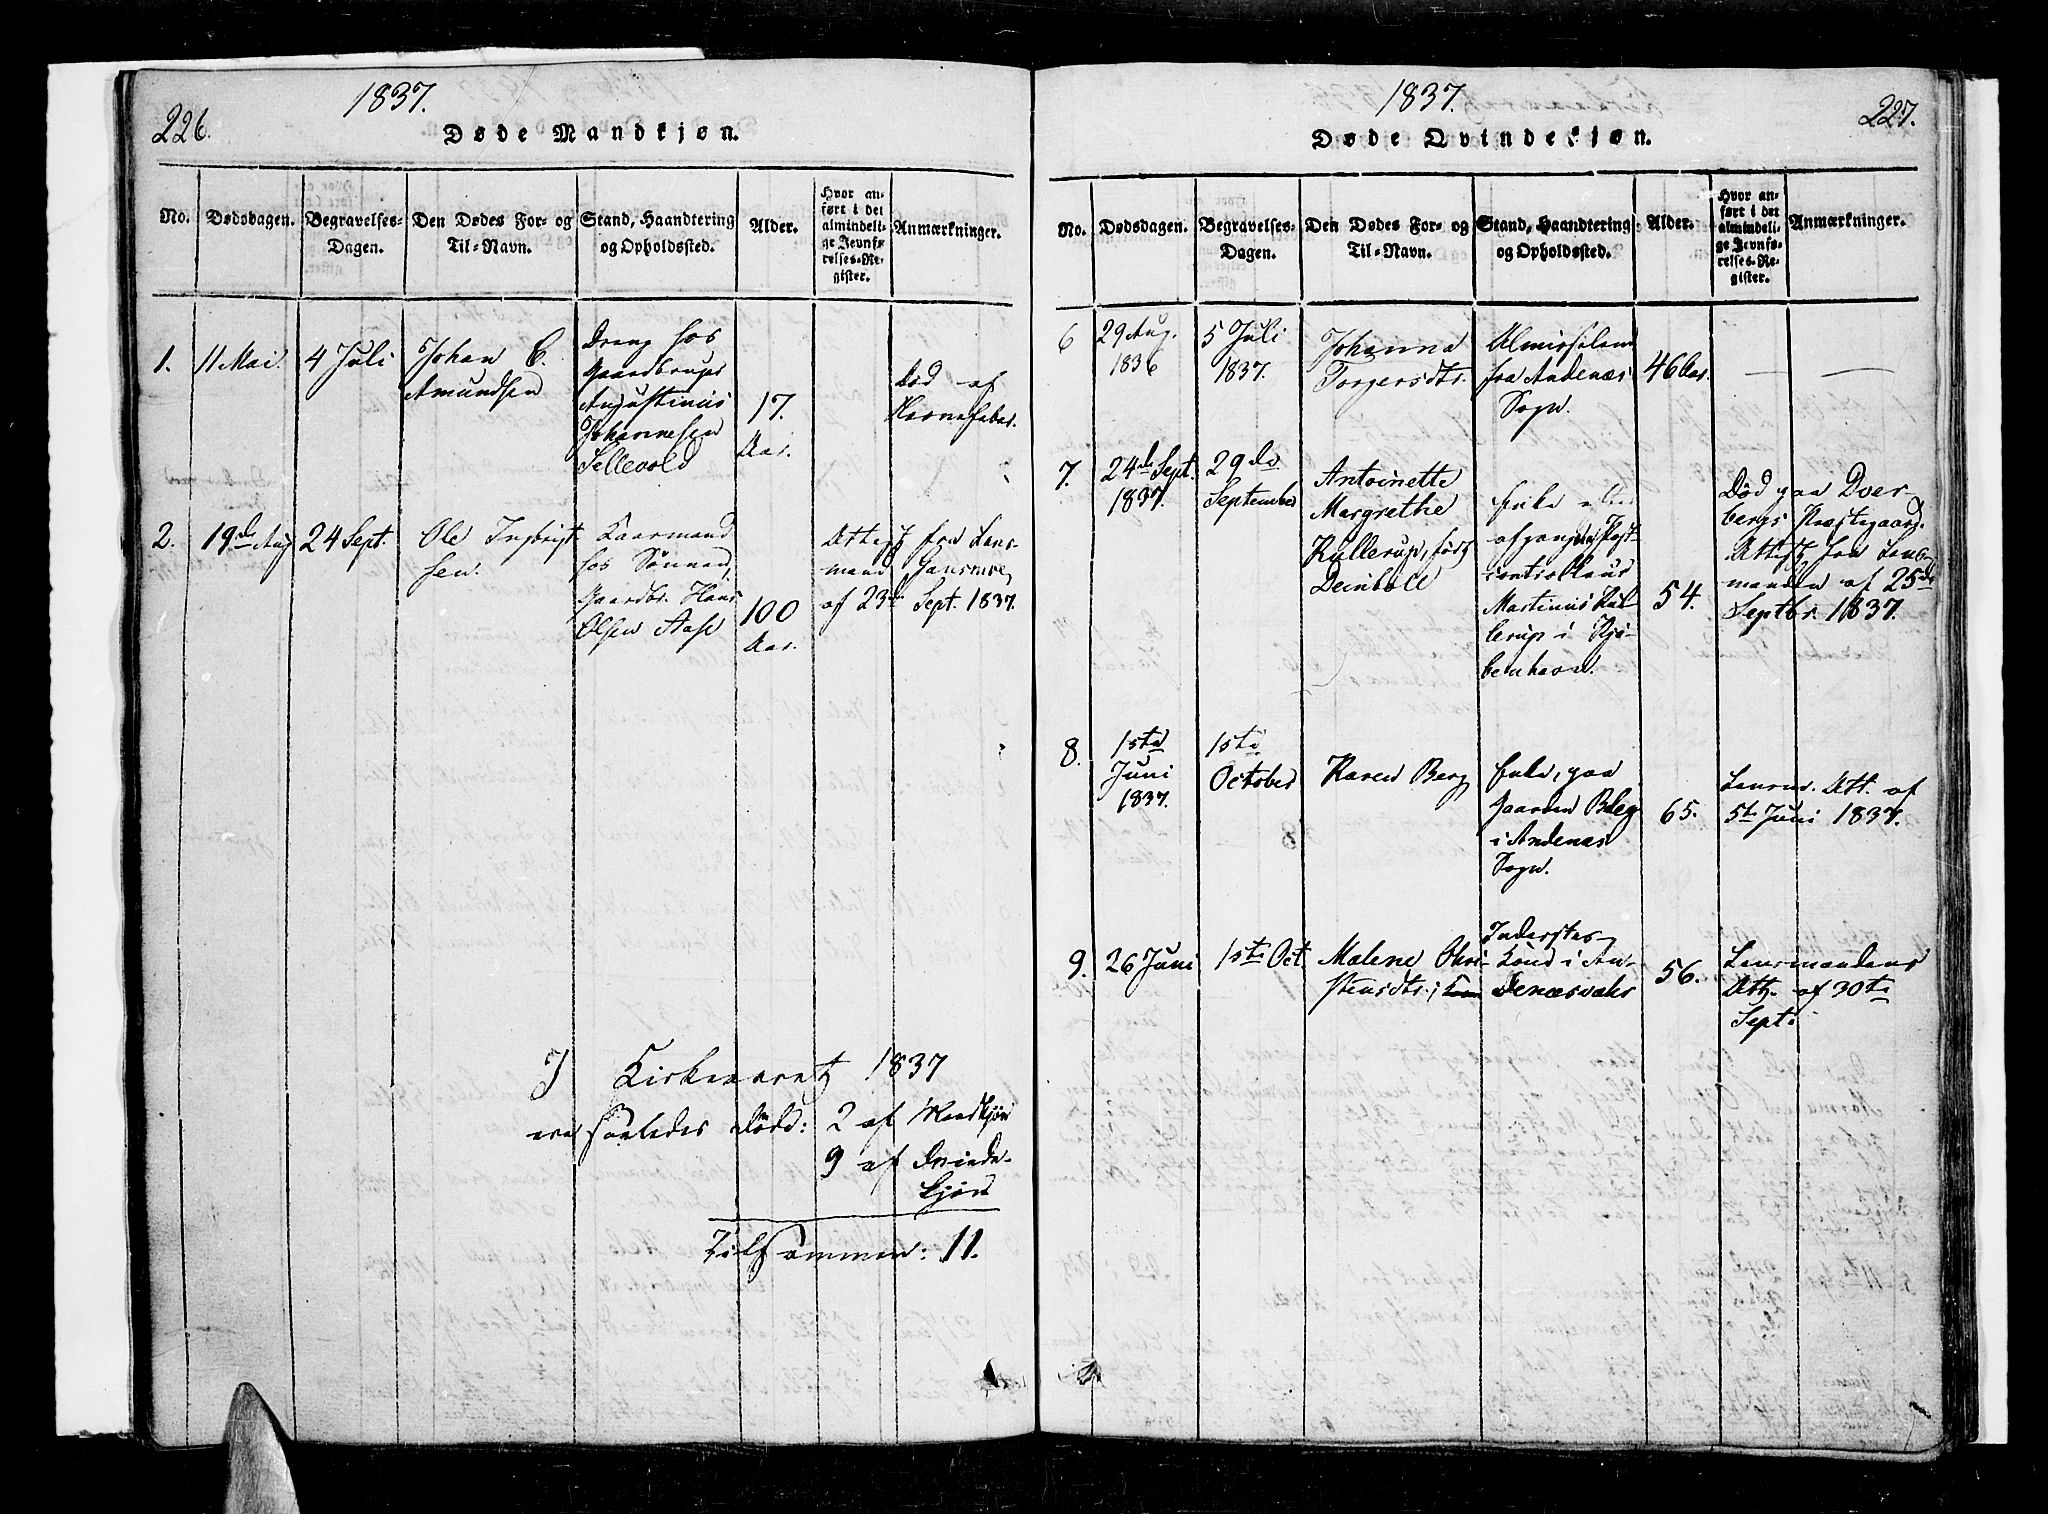 226.
1837.
Døde Mandkjøn.
No.
Dødsdagen.
Begravelses-
Dagen.
Den Dødes For- og
Til-Navn.
Stand, Haandtering
og Opholdssted.
Alder.
Hvor an-
ført i det
almindeli-
ge Jevnfø-
relses-Re-
gister.
Anmærkninger.
1.
11 Mai.
4 Juli
Johan C.
Amundsen
Dreng hos
Gaardbruger
Augustinus
Johannesen
Sellevold
17.
Aar.
Død af
2.
19de Aug
24 Sept.
Ole Ingbrigt-
sen.
Kaarmand
hos Sønnen,
Gaardbr. Hans
Olsen Aase
100
Aar.
Attest fra Lens-
mand
af 23de Sept. 1837.
I Kirkeaaret 1837
ere saaledes døde: 2 af Mandkjøn
9 af Qvinde-
kjøn
Tilsammen: 11.
1837.
227.
Døde Qvindekjøn.
No.
Dødsdagen.
Begravelses-
Dagen.
Den Dødes For- og
Til-Navn.
Stand, Haandtering
og Opholdssted.
Alder.
Hvor an-
ført i det
almindeli-
ge Jevnfø-
relses-Re-
gister.
Anmærkninger.
6
29 Aug.
1836
5 Juli
1837.
Johanna
Torgersdtr.
Almisselem
fra Andenæs
Sogn.
46 Aar.
7.
24de Sept.
1837.
29de
September
Antoinette
Margrethe
Kullerup, født
Deinboll
Enke efter
afgangne Post-
controlleur
Martinus Kul-
lerup i Kjø-
benhavn.
54.
Død paa Dver-
bergs Præstegaard.
Attest fra Lens-
manden af 25de
Septbr. 1837.
8.
1ste
Juni
1837.
1ste
October
Karen Berg
Enke, paa
Gaarden Bleg
i Andenæs
Sogn.
65.
Lensm. Att. af
5te Juni 1837.
9.
26 Juni
1ste Oct.
Malene Chri-
stensdtr.,
Inderstes
Kone i An-
denæsvæhr
56.
Lensmandens
Att. af 30te
Sept: